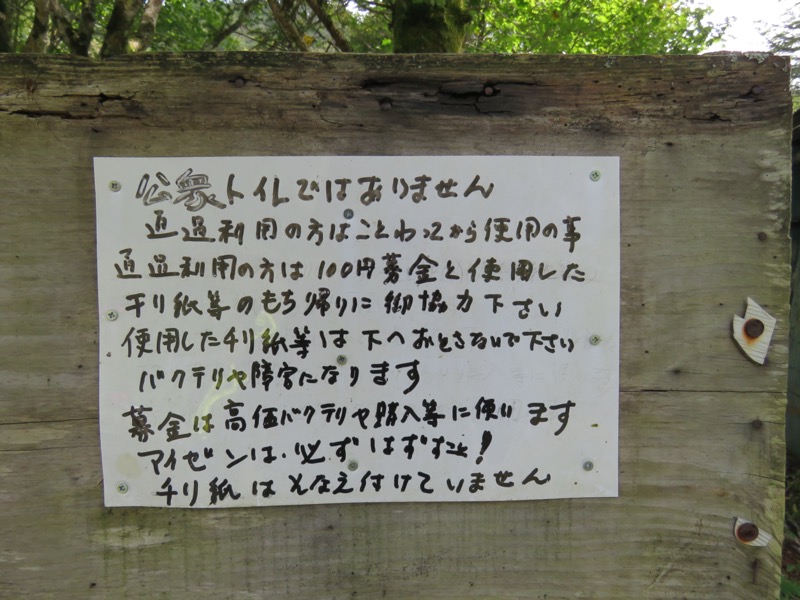 公衆トイレではありません
通過利用の方はことわってから使用の事
通過利用の方は100円募金と使用した
チリ紙等のもち帰りに御協力下さい
使用したチリ紙等は下へおとさないで下さい
バクテリヤ障害になります
募金は高価バクテリヤ購入等に使います
アイゼンは必ずはずす事!
チリ紙はそなえ付けていません